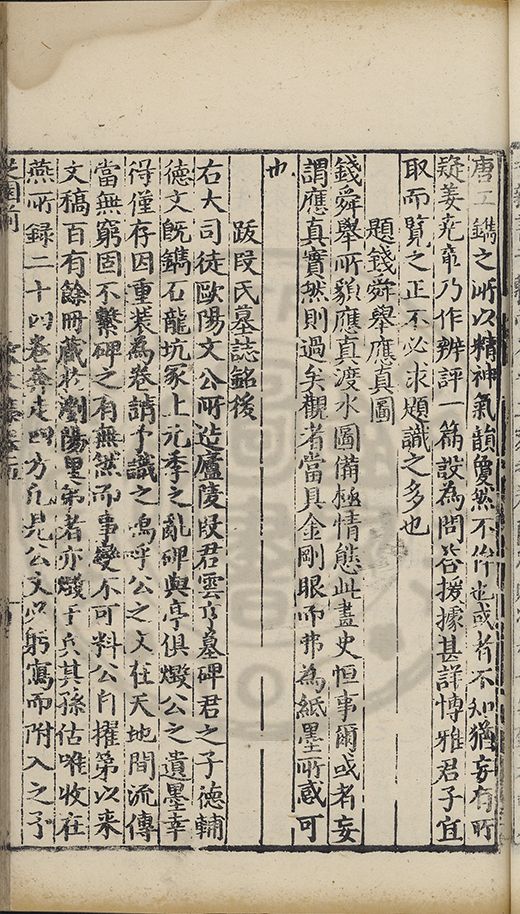 唐工鐫之所以精神氣韻夐然不侔也或者不知猶妄有所
疑姜堯章乃作辨評一篇設為問荅援據甚詳博雅君子宜
取而覽之正不必求題識之多也
題錢舜舉應真圖
錢舜舉所貌應真渡水圖備極情態此畫史恒事爾或者妄
謂應真實然則過矣觀者當具金剛眼而弗為紙墨所惑可
也
跋段氏墓誌銘後
右大司徒歐陽文公所造廬陵段君雲亨墓碑君之子德輔
德文旣鐫石龍坑冢上元季之亂碑與亭俱燬公之遺墨幸
得僅存因重装為卷請予識之嗚呼公之文在天地間流傳
當無窮固不繫碑之有無然而事變不可料公自擢第以来
文稿百有餘冊藏於瀏陽里第者亦燬于兵其孫佑唯收在
燕所録二十四卷奔走四方凡見公文必躬寫而附入之予